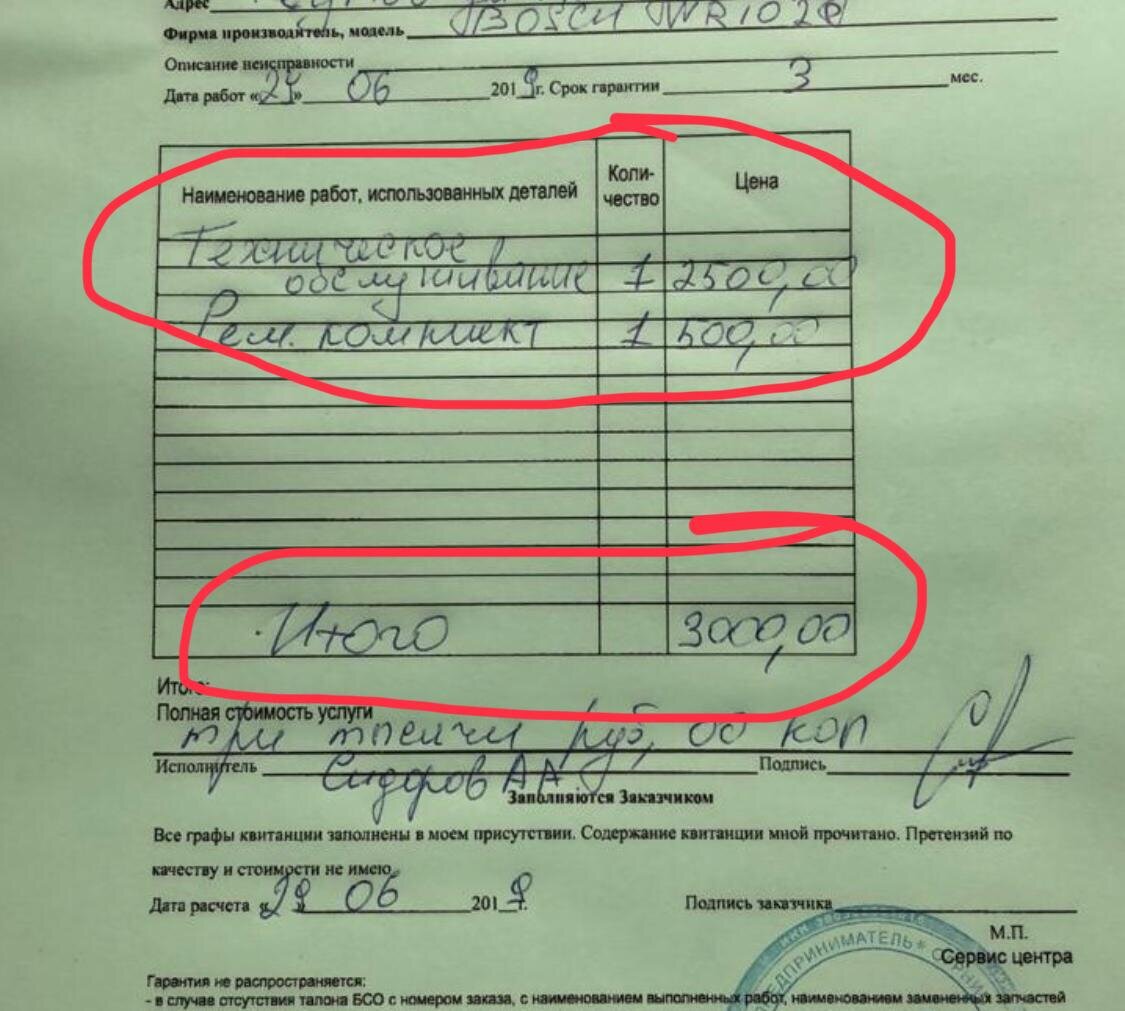 Адрес
Фирма производитель, модель BOSCH WR10 2
Описание неисправности
Дата работ « » 06 2019г. Срок гарантии 3 мес.
Наименование работ, использованных деталей Коли-чество Цена
Техническое
обслуживание 1 2500,00
Рем. комплект 1 500,00
Итого 3000,00
Итого:
Полная стоимость услуги
три тысячи руб, 00 коп
Исполнитель Сидоров АА Подпись
Заполняются Заказчиком
Все графы квитанции заполнены в моем присутствии. Содержание квитанции мной прочитано. Претензий по
качеству и стоимости не имею
Дата расчета « » 06 2019г. Подпись заказчика
М.П.
Сервис центра
ПРЕДПРИНИМАТЕЛЬ *
Гарантия не распространяется:
- в случае отсутствия талона БСО с номером заказа, с наименованием выполненных работ, наименованием замененных запчастей